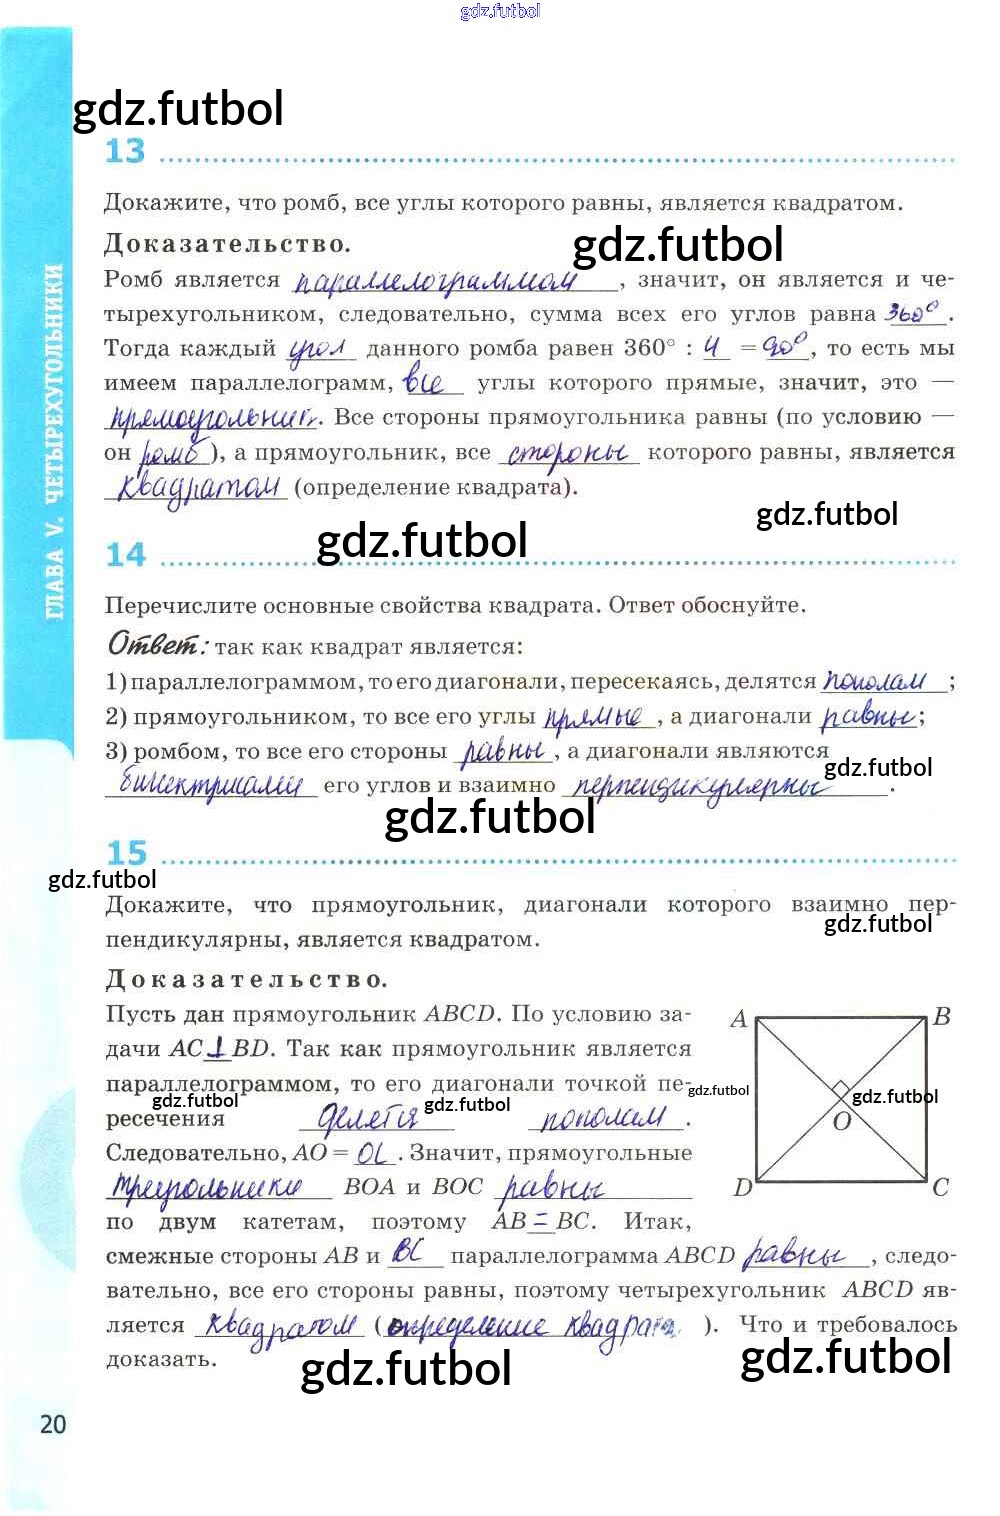 gdz.futbol
gdz.futbol
13
Докажите, что ромб, все углы которого равны, является квадратом.
Доказательство.
gdz.futbol
Ромб является параллелограммом, значит, он является и че-
тырехугольником, следовательно, сумма всех его углов равна 360°.
Тогда каждый угол данного ромба равен 360° : 4 = 90°, то есть мы
имеем параллелограмм, все углы которого прямые, значит, это —
прямоугольник. Все стороны прямоугольника равны (по условию —
он ромб), а прямоугольник, все стороны которого равны, является
квадратом (определение квадрата).
gdz.futbol
gdz.futbol
14
Перечислите основные свойства квадрата. Ответ обоснуйте.
Ответ: так как квадрат является:
1) параллелограммом, то его диагонали, пересекаясь, делятся пополам;
2) прямоугольником, то все его углы прямые, а диагонали равны;
3) ромбом, то все его стороны равны, а диагонали являются
gdz.futbol
биссектрисами его углов и взаимно перпендикулярны.
gdz.futbol
15
gdz.futbol
Докажите, что прямоугольник, диагонали которого взаимно пер-
gdz.futbol
пендикулярны, является квадратом.
Доказательство.
Пусть дан прямоугольник ABCD. По условию за-
дачи AC ⊥ BD. Так как прямоугольник является
параллелограммом, то его диагонали точкой пе-
gdz.futbol
gdz.futbol
gdz.futbol
gdz.futbol
ресечения делятся пополам.
Следовательно, AO = OC. Значит, прямоугольные
треугольники BOA и BOC равны
по двум катетам, поэтому AB = BC. Итак,
A
B
O
D
C
смежные стороны AB и BC параллелограмма ABCD равны, следо-
вательно, все его стороны равны, поэтому четырехугольник ABCD яв-
ляется квадратом (определение квадрата). Что и требовалось
доказать.
gdz.futbol
gdz.futbol
20
ГЛАВА V. ЧЕТЫРЕХУГОЛЬНИКИ